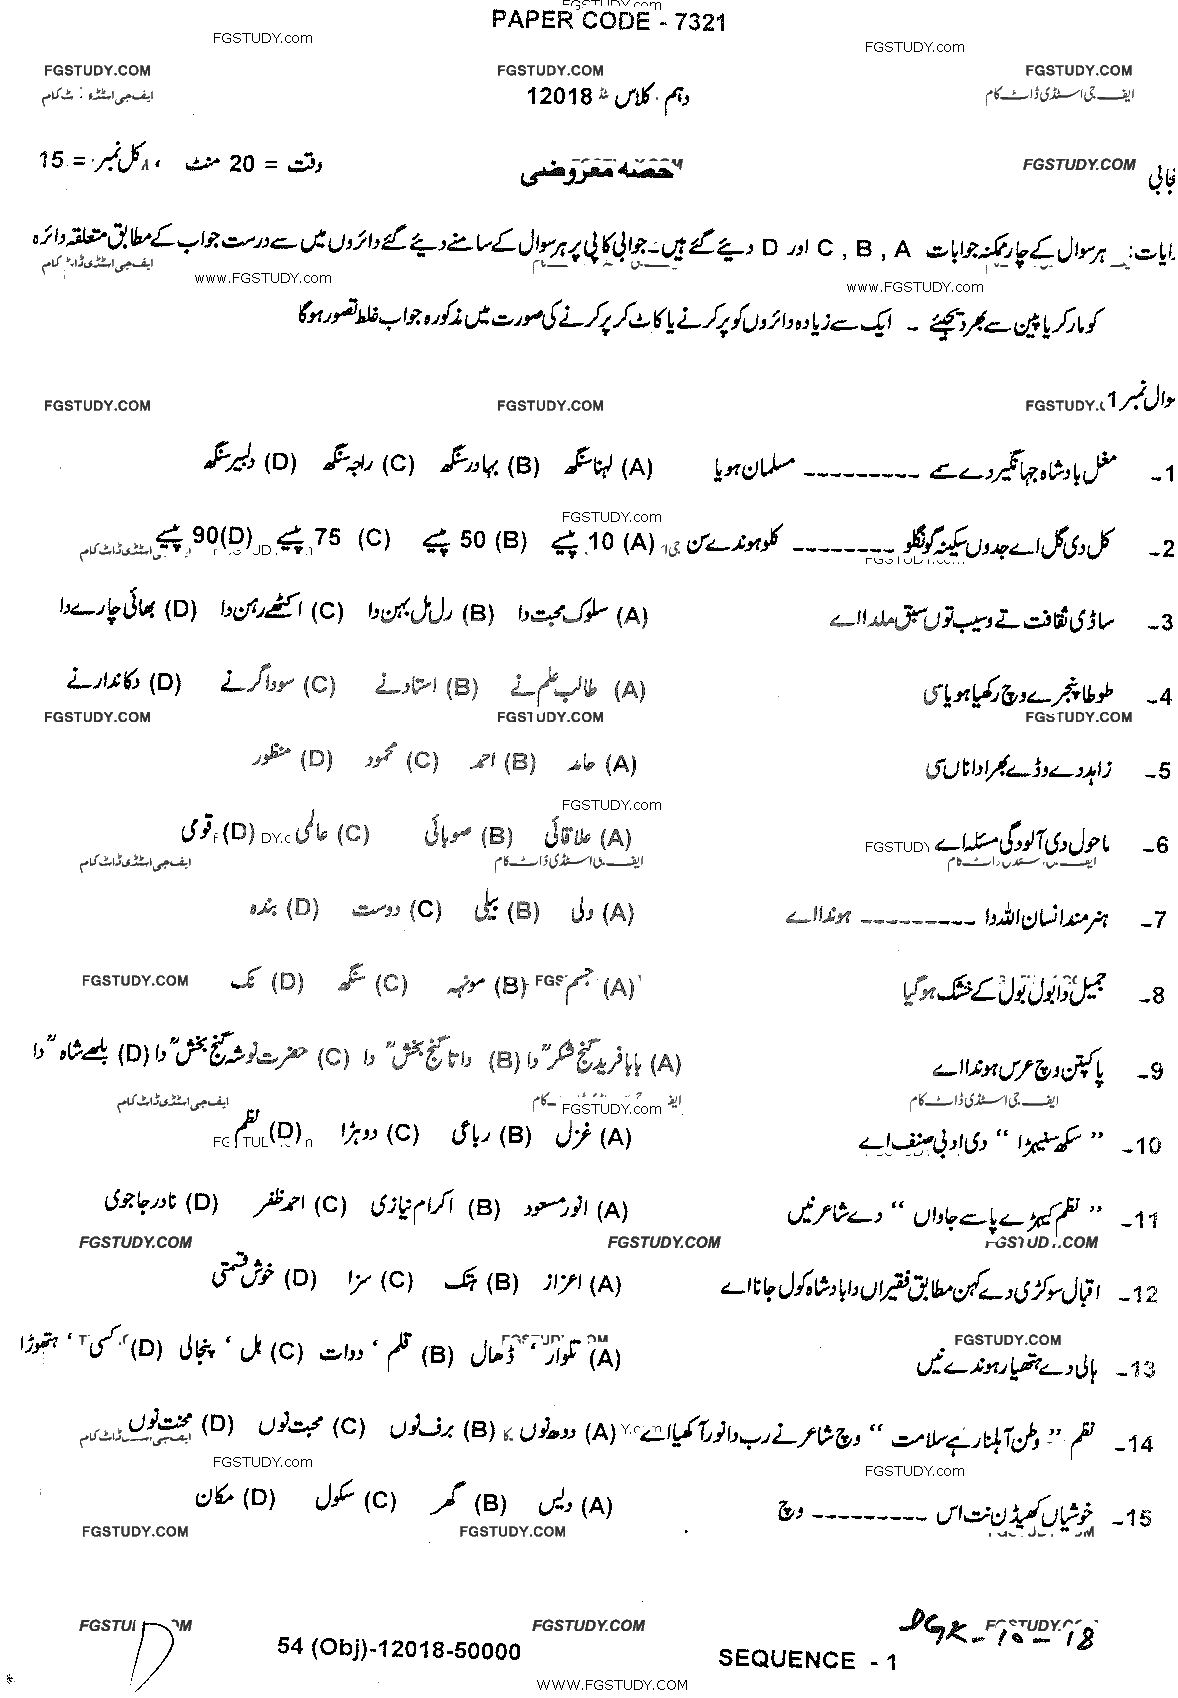 FGSTUDY.com
PAPER CODE - 7321
FGSTUDY.com FGSTUDY.com
FGSTUDY.COM FGSTUDY.COM FGSTUDY.COM
ایف جی اسٹڈی ڈاٹ کام دہم کلاس 12018
حصہ معروضی وقت = 20 منٹ کل نمبر = 15
FGSTUDY.COM
ہر سوال کے چار ممکنہ جوابات A , B , C اور D دیئے گئے ہیں۔ جوابی کاپی پر ہر سوال کے سامنے دیئے گئے دائروں میں سے درست جواب کے مطابق متعلقہ دائرہ
www.FGSTUDY.com www.FGSTUDY.com
کو مارکر یا پین سے بھر دیجئے - ایک سے زیادہ دائروں کو پر کرنے یا کاٹ کر پر کرنے کی صورت میں مذکورہ جواب غلط تصور ہوگا
نمبر 1
FGSTUDY.COM FGSTUDY.COM
1- مغل بادشاہ جہانگیر دے سے --------- مسلمان ہویا (A) لہنا سنگھ (B) بہادر سنگھ (C) راجہ سنگھ (D) دلبیر سنگھ
FGSTUDY.com
2- کل دی گل اے جدوں سکینہ گونگلو --------- کلو ہوندے سن (A) 10 پیسے (B) 50 پیسے (C) 75 پیسے (D) 90 پیسے
3- ساڈی ثقافت تے وسیب توں سبق ملدا اے (A) سلوک محبت دا (B) رل مل بہن دا (C) اکٹھے رہن دا (D) بھائی چارے دا
4- طوطا پنجرے وچ رکھیا ہویا سی (A) طالب علم نے (B) استاد نے (C) سوداگر نے (D) دکاندار نے
FGSTUDY.COM FGSTUDY.COM FGSTUDY.COM
5- زاہد دے وڈے بھرا دا ناں سی (A) حامد (B) احمد (C) محمود (D) منظور
FGSTUDY.com
6- ماحول دی آلودگی مسئلہ اے (A) علاقائی (B) صوبائی (C) عالمی (D) قومی
ایف جی اسٹڈی ڈاٹ کام ایف جی اسٹڈی ڈاٹ کام
7- ہنر مند انسان اللہ دا --------- ہوندا اے (A) ولی (B) بیلی (C) دوست (D) بندہ
8- جمیل دا بول بول کے خشک ہو گیا (A) جسم (B) مونہہ (C) سنگھ (D) نک
FGSTUDY.COM
9- پاکپتن وچ عرس ہوندا اے (A) بابا فرید گنج شکرؒ دا (B) داتا گنج بخشؒ دا (C) حضرت نوشہ گنج بخشؒ دا (D) بلھے شاہؒ دا
ایف جی اسٹڈی ڈاٹ کام FGSTUDY.com ایف جی اسٹڈی ڈاٹ کام
10- " سکھ سنیہڑا " دی ادبی صنف اے (A) غزل (B) رباعی (C) دوہڑا (D) نظم
11- " نظم کیہڑے پاسے جاواں " دے شاعر نیں (A) انور مسعود (B) اکرام نیازی (C) احمد ظفر (D) نادر جاجوی
FGSTUDY.COM FGSTUDY.COM FGSTUDY.COM
12- اقبال سوکڑی دے کہن مطابق فقیراں دا بادشاہ کول جانا اے (A) اعزاز (B) ہتک (C) سزا (D) خوش قسمتی
FGSTUDY.COM
13- ہالی دے ہتھیار ہوندے نیں (A) تلوار ، ڈھال (B) قلم ، دوات (C) ہل ، پنجالی (D) کسی ، ہتھوڑا
14- نظم " وطن آہلنا رہے سلامت " وچ شاعر نے رب دا نور آکھیا اے (A) دودھ نوں (B) برف نوں (C) محبت نوں (D) محنت نوں
FGSTUDY.com FGSTUDY.com
15- خوشیاں کھیڈن نت اس --------- وچ (A) دیس (B) گھر (C) سکول (D) مکان
FGSTUDY.COM FGSTUDY.COM
FGSTUDY.COM
D 54 (Obj)-12018-50000 SEQUENCE - 1 DGK-10-18
WWW.FGSTUDY.COM